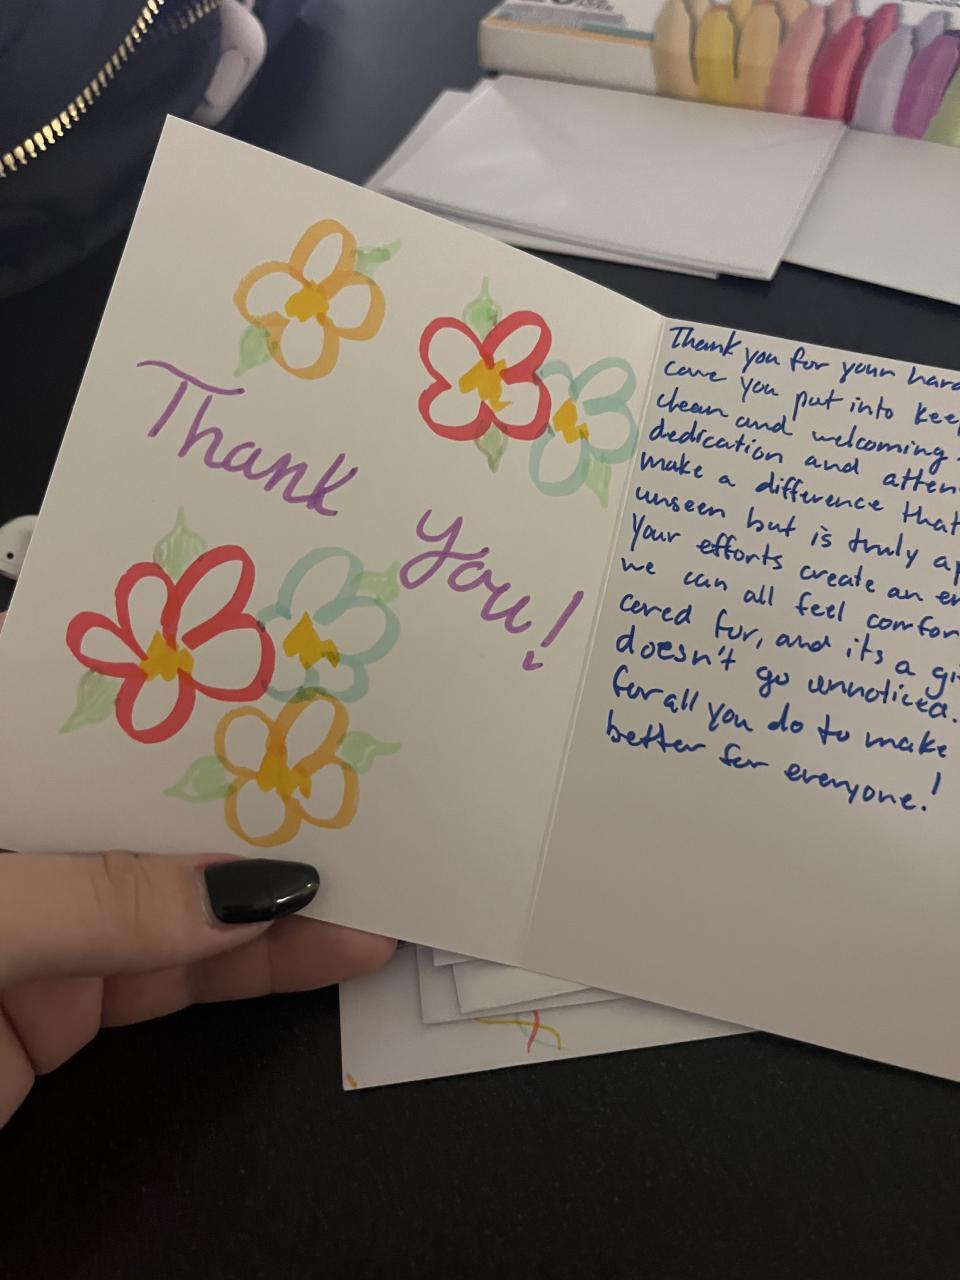 Thank
you!
Thank you for your hard
care you put into keep
clean and welcoming.
dedication and atten
make a difference that
unseen but is truly ap
Your efforts create an en
we can all feel comfor
cared for, and its a gi
doesn't go unnoticed.
for all you do to make
better for everyone!